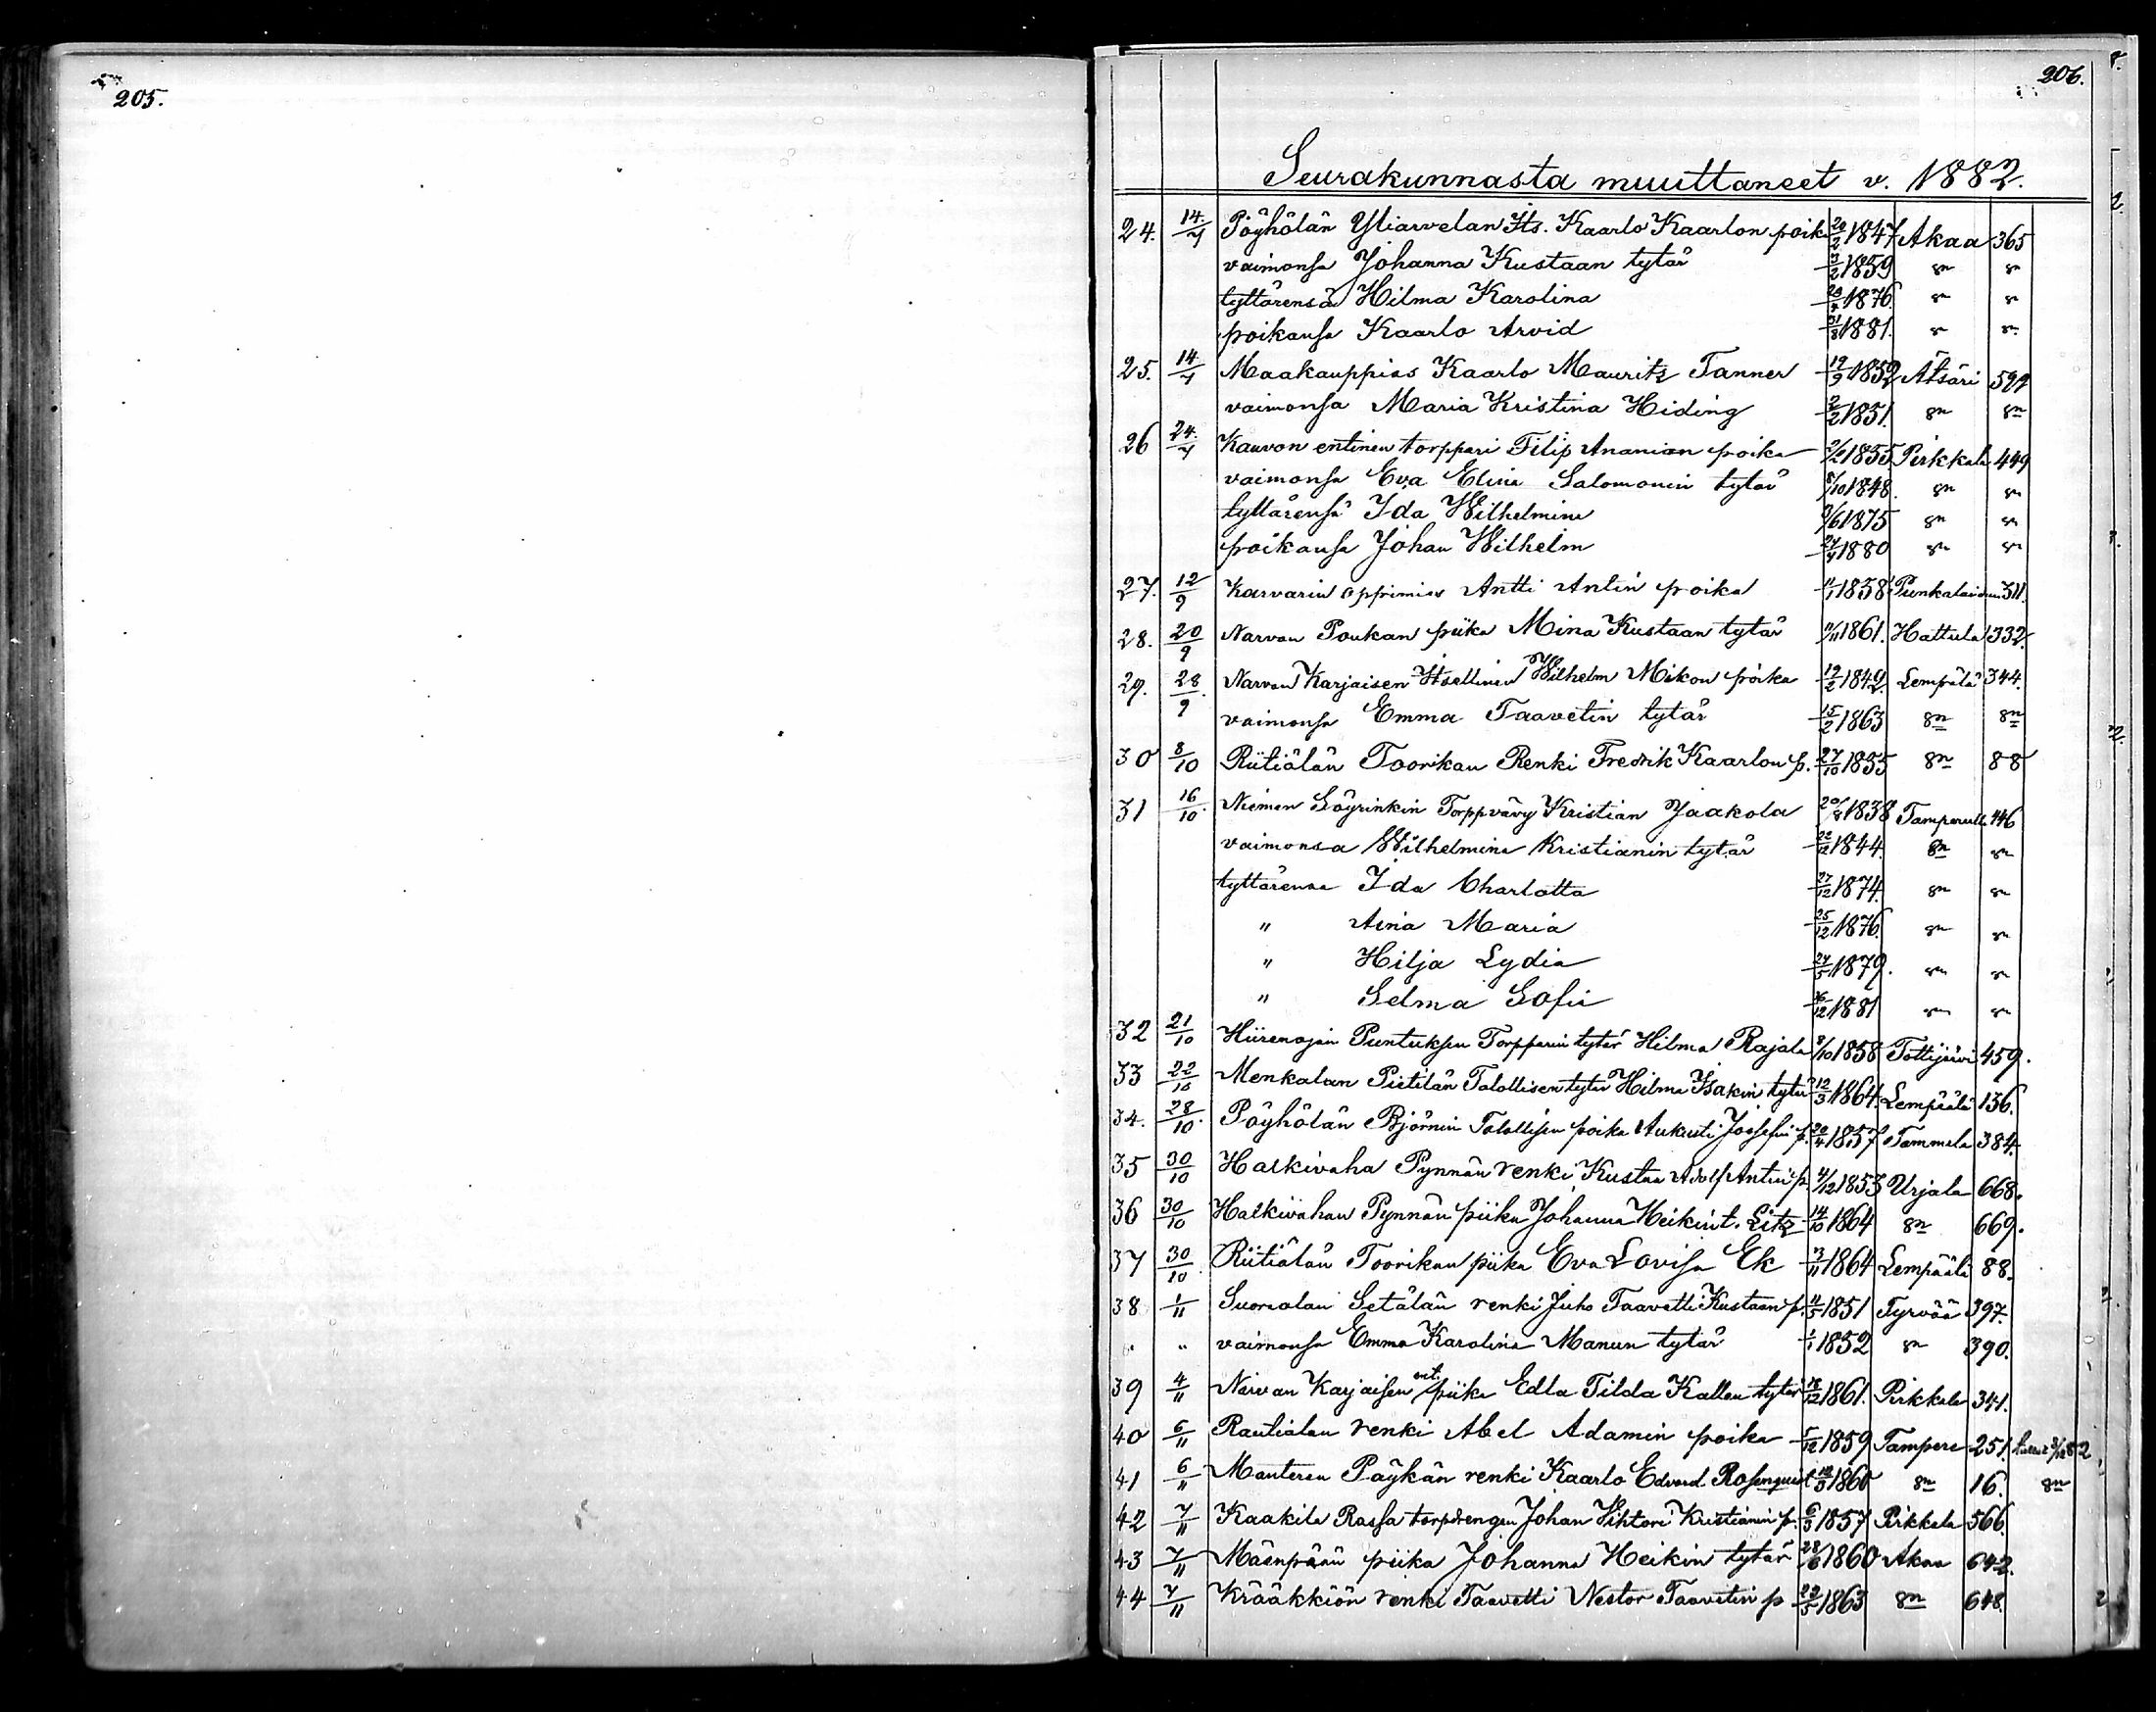 205.
206.
Seurakunnasta muuttaneet v. 1882.
24. 14/7 Pöyhölän Yliarvelan Its. Kaarlo Kaarlon poika 20/2 1847 Akaa 365
vaimonsa Johanna Kustaan tytär 1859 sn sn
tyttärensä Hilma Karolina 1876 sn sn
poikansa Kaarlo Arvid 1881. sn sn
25. 14/7 Maakauppias Kaarlo Mauritz Tanner 19/9 1852 Ätsäri 599
vaimonsa Maria Kristina Hiding 2/2 1851. sn sn
26 24/7 Kauvon entinen torppari Filip Ananian poika 1855 Pirkkala 449
vaimonsa Eva Elina Salomonin tytär 8/10 1848. sn sn
tyttärensä Ida Wilhelmina 1875 sn sn
poikansa Johan Wilhelm 1880 sn sn
27. 12/9 Karvarin oppimies Antti Antin poika 1858 Punkalaidun 311.
28. 20/9 Narvan Poukan piika Mina Kustaan tytär 11/11 1861. Hattula 332.
29. 28/9 Narvan Karjaisen Itsellinen Wilhelm Mikon poika 19/2 1842. Lempälä 344.
vaimonsa Emma Taavetin tytär 15/2 1863 sn sn
30 8/10 Riitiälän Toorikan Renki Fredrik Kaarlon p. 27/10 1855 sn 88
31 16/10 Niemen Törppväry Kristian Jaakola 1838 Tamperelle 446
vaimonsa Wilhelmina Kristianin tytär 22/12 1844. sn sn
tyttärensa Ida Charlotta 27/12 1874. sn sn
" Aina Maria 25/12 1876. sn sn
" Hilja Lydia 24/5 1879. sn sn
" Selma Sofia 16/12 1881 sn sn
32 21/10 Hiirenojan Puntuksen Torpparin tytär Hilma Rajala 1858 Tottijärvi 459.
33 22/10 Menkalan Pietilän Talollisen tytär Hilma Isakin tytär 12/3 1864. Lempäälä 136.
34. 28/10. Pöyhölän Björnin Talollisen poika Aukusti Joosefin p. 20/4 1857 Tammela 384.
35 30/10 Halkivaha Pynnän renki Kustaa Adolf Antin p. 4/12 1853 Urjala 668.
36 30/10 Halkivahan Pynnän piika Johanna Heikin t. Litz 14/10 1864 sn 669.
37 30/10. Riitiälän Toorikan piika Eva Lovisa Ek 3/11 1864 Lempäälä 88.
38 1/11 Suonalan Setälän renki Juho Taavetti Kustaan p. 11/5 1851 Tyrvää 397.
" " vaimonsa Emma Karolina Manun tytär 1/1 1852 sn 390.
39 4/11 Narvan Karjaisen ent. piika Edla Tilda Kallen tytär 18/12 1861. Pirkkala 341.
40 6/11 Rautialan renki Abel Adamin poika 5/12 1859 Tampere 251.
41 6/11 Manteren Päykän renki Kaarlo Edvard Rosenquist 1860 sn 16. sn
42 7/11 Kaakila Rassa torpdrengen Johan Wihtori Kristianin p. 6/3 1857 Pirkkala 566.
43 7/11 Mäenpään piika Johanna Heikin tytär 28/6 1860 Akaa 642.
44 7/11 Krääkkiön renki Taavetti Nestor Taavetin p 22/5 1863 sn 648.